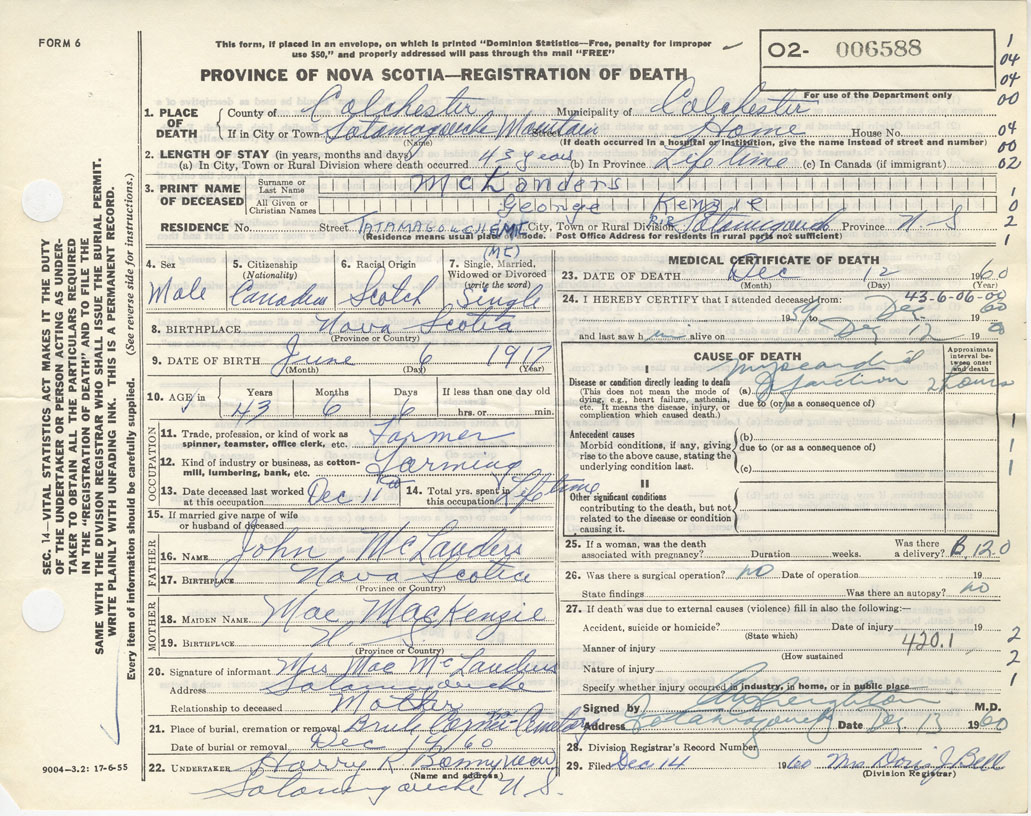 FORM 6
This form, if placed in an envelope, on which is printed "Dominion Statistics—Free, penalty for improper
use $50," and properly addressed will pass through the mail "FREE"
O2- 006588
For use of the Department only
1
04
04
00
04
00
02
PROVINCE OF NOVA SCOTIA—REGISTRATION OF DEATH
1. PLACE OF DEATH
County of Colchester Municipality of Colchester
If in City or Town Tatamagouche Mountain Street Home House No.
(Name) (If death occurred in a hospital or institution, give the name instead of street and number)
2. LENGTH OF STAY (in years, months and days)
(a) In City, Town or Rural Division where death occurred 43 years (b) In Province Life time (c) In Canada (if immigrant)
3. PRINT NAME OF DECEASED
Surname or Last Name McLanders
All Given or Christian Names George Kenzie
RESIDENCE No. Street TATAMAGOUCHE MT City, Town or Rural Division RR Tatamagouche Province N S
(Residence means usual place of abode. Post Office Address for residents in rural parts not sufficient)
(MC)
1
0
2
1
4. Sex Male
5. Citizenship (Nationality) Canadian
6. Racial Origin Scotch
7. Single, Married, Widowed or Divorced (write the word) Single
8. BIRTHPLACE Nova Scotia
(Province or Country)
9. DATE OF BIRTH June 6 1917
(Month) (Day) (Year)
10. AGE in Years 43 Months 6 Days 6 If less than one day old hrs. or min.
OCCUPATION
11. Trade, profession, or kind of work as spinner, teamster, office clerk, etc. Farmer
12. Kind of industry or business, as cotton-mill, lumbering, bank, etc. Farming
13. Date deceased last worked at this occupation Dec 11th 14. Total yrs. spent in this occupation Life time
15. If married give name of wife or husband of deceased
FATHER
16. NAME John McLanders
17. BIRTHPLACE Nova Scotia
(Province or Country)
MOTHER
18. MAIDEN NAME Mae MacKenzie
19. BIRTHPLACE N S
(Province or Country)
20. Signature of informant Mrs Mae McLanders
Address Tatamagouche
Relationship to deceased Mother
21. Place of burial, cremation or removal Brule Cemetery
Date of burial or removal Dec 60
22. UNDERTAKER Harry R Bonnyman
(Name and address)
Tatamagouche N.S.
MEDICAL CERTIFICATE OF DEATH
23. DATE OF DEATH Dec 12 1960
(Month) (Day) (Year)
24. I HEREBY CERTIFY that I attended deceased from:
43-6-06-00
1959 to Dec 1960
and last saw him alive on Dec 12 19
CAUSE OF DEATH
Approximate interval between onset and death
I
Disease or condition directly leading to death
(This does not mean the mode of dying, e.g., heart failure, asthenia, etc. It means the disease, injury, or complication which caused death.)
(a) Myocardial Infarction 2 hours
due to (or as a consequence of)
Antecedent causes
Morbid conditions, if any, giving rise to the above cause, stating the underlying condition last.
(b)
due to (or as a consequence of)
(c)
II
Other significant conditions
contributing to the death, but not related to the disease or condition causing it.
1
1
1
25. If a woman, was the death associated with pregnancy? Duration weeks. Was there a delivery? B. 120
26. Was there a surgical operation? no Date of operation 19
State findings Was there an autopsy? no
27. If death was due to external causes (violence) fill in also the following:—
Accident, suicide or homicide? Date of injury 19
(State which)
Manner of injury 420.1
(How sustained
Nature of injury
Specify whether injury occurred in industry, in home, or in public place
2
2
1
Signed by M.D.
Address Tatamagouche Date Dec 13 1960
28. Division Registrar's Record Number
29. Filed Dec 14 1960 Mrs Doris J Bell
(Division Registrar)
SEC. 14—VITAL STATISTICS ACT MAKES IT THE DUTY
OF THE UNDERTAKER OR PERSON ACTING AS UNDER-
TAKER TO OBTAIN ALL THE PARTICULARS REQUIRED
IN THE "REGISTRATION OF DEATH" AND TO FILE THE
SAME WITH THE DIVISION REGISTRAR WHO SHALL ISSUE THE BURIAL PERMIT.
WRITE PLAINLY WITH UNFADING INK. THIS IS A PERMANENT RECORD.
Every item of information should be carefully supplied. (See reverse side for instructions.)
9004-3.2: 17-6-55